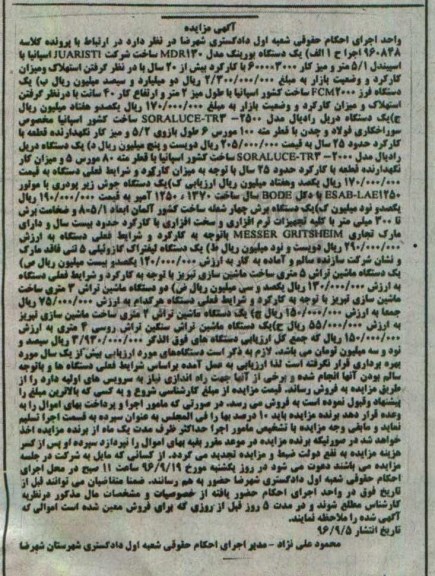 آگهی مزایده
واحد اجرای احکام حقوقی شعبه اول دادگستری شهرضا در نظر دارد در ارتباط با پرونده کلاسه
۹۶۰۸۴۸ اجرا ح ۱ الف) یک دستگاه بورینگ مدل MDR۱۳۰ ساخت شرکت JUARISTI اسپانیا با
اسپیندل ۵/۱ متر و میز کار ۶۰۰۰۰۳۰۰۰ با کارکرد بیش از ۲۰ سال با در نظر گرفتن استهلاک ومیزان
کارکرد و وضعیت بازار به مبلغ ۲/۳۰۰/۰۰۰/۰۰۰ ریال دو میلیارد و سیصد میلیون ریال ب) یک
دستگاه فرز FCM۲۰۰۰ ساخت کشور اسپانیا با طول میز ۲ متر و ارتفاع کار ۴۰ سانت با درنظر گرفتن
استهلاک و میزان کارکرد و وضعیت بازار به مبلغ ۱۷۰/۰۰۰/۰۰۰ ریال یکصدو هفتاد میلیون ریال
ج)یک دستگاه دریل رادیال مدل SORALUCE-TR۳ -۲۵۰۰ ساخت کشور اسپانیا مخصوص
سوراخکاری فولاد و چدن با قطر مته ۱۰۰ مورس ۶ طول بازوی ۵/۲ و میز کار نگهدارنده قطعه با
کارکرد حدود ۲۵ سال به قیمت ۲۰۵/۰۰۰/۰۰۰ ریال دویست و پنج میلیون ریال د) یک دستگاه دریل
رادیال مدل SORALUCE-TR۳ -۲۰۰۰ ساخت کشور اسپانیا با قطر مته ۸۰ مورس ۵ و میزان کار
نگهدارنده قطعه با کارکرد حدود ۲۵ سال با توجه به میزان کارکرد و شرایط فعلی دستگاه به قیمت
۱۷۰/۰۰۰/۰۰۰ ریال یکصد وهفتاد میلیون ریال ارزیابی ک)یک دستگاه جوش زیر پودری با موتور
ESAB-LAE۱۲۵۰ با دکل BODE سال ساخت ۱۳۷۰ ؛ ۱۲۵۰ آمپر به قیمت ۱۹۰/۰۰۰/۰۰۰ ریال
یکصدو نود میلیون ک)یک دستگاه برش چهار شعله ساخت کشور آلمان ابعاد ۸۰۵/۱ و ضخامت برش
تا ۳۰۰ میلی متر با کلیه تجهیزات نرم افزاری و سخت افزاری با کارکرد حدود بیست سال و دارای
مارک تجاری MESSER GRITSHEIM باتوجه به کارکرد و شرایط فعلی دستگاه به ارزش
۲۹۰/۰۰۰/۰۰۰ ریال دویست و نود میلیون ریال ط) یک دستگاه لیفتراک گازوئیلی ۵ تنی فاقد مارک
و نشان شرکت سازنده سالم و آماده به کار به ارزش ۱۲۰/۰۰۰/۰۰۰ یکصدو بیست میلیون ریال ص)
یک دستگاه ماشین تراش ۵ متری ساخت ماشین سازی تبریز با توجه به کارکرد و شرایط فعلی دستگاه
به ارزش ۱۳۰/۰۰۰/۰۰۰ ریال یکصد و سی میلیون ریال ض) دو دستگاه ماشین تراش ۳ متری ساخت
ماشین سازی تبریز با توجه به کارکرد و شرایط فعلی دستگاه هرکدام به ارزش ۷۵/۰۰۰/۰۰۰ ریال
جمعا به ارزش ۱۵۰/۰۰۰/۰۰۰ ریال چ) یک دستگاه ماشین تراش ۲ متری ساخت ماشین سازی تبریز
به ارزش ۵۵/۰۰۰/۰۰۰ ریال ح)یک دستگاه ماشین تراش سنگین تراش روسی ۴ متری به ارزش
۱۵۰/۰۰۰/۰۰۰ ریال که جمع کل ارزیابی دستگاه های فوق الذکر ۳/۹۳۰/۰۰۰/۰۰۰ ریال سیصد و
نود و سه میلیون تومان می باشد. لازم به ذکر است دستگاههای مورد ارزیابی بیش از یک سال مورد
بهره برداری قرار نگرفته است لذا ارزیابی به عمل آمده براساس شرایط فعلی دستگاه ها و باتوجه
سالم بودن آنها انجام شده و برخی از آنها جهت راه اندازی نیاز به سرویس های اولیه دارد را از
طریق مزایده به فروش رساند. قیمت مزایده از مبلغ کارشناسی شروع و به کسی که بالاترین مبلغ را
پیشنهاد وقبول نموده است به فروش می رسد. در صورتی که مامور اجرا و پرداخت بهای اموال را به
وعده قرار دهد برنده مزایده باید ۱۰ درصد بها را فی المجلس به عنوان سپرده به قسمت اجرا تسلیم
نماید و مابقی وجه مزایده با تشخیص مامور اجرا حداکثر ظرف مدت یک ماه از برنده مزایده اخذ
خواهد شد در صورتیکه برنده مزایده در موعد مقرر بقیه بهای اموال را نپردازد سپرده او پس از کسر
هزینه مزایده به نفع دولت ضبط و مزایده تجدید می گردد. از کسانی که مایل به شرکت در جلسه
مزایده می باشند دعوت می شود در روز یکشنبه مورخ ۹۶/۹/۱۹ ساعت ۱۱ صبح در محل اجرای
احکام حقوقی شعبه اول دادگستری شهرضا حضور به هم رسانند. ضمنا متقاضیان می توانند قبل از
تاریخ فوق در واحد اجرای احکام حضور یافته از خصوصیات و مشخصات مال مذکور درنظریه
کارشناس مطلع شوند و در مدت ۵ روز قبل از روزی که برای فروش معین شده است اموالی که
آگهی شده را ملاحظه نمایند.
تاریخ انتشار ۹۶/۹/۵
محمود علی نژاد - مدیر اجرای احکام حقوقی شعبه اول دادگستری شهرستان شهرضا